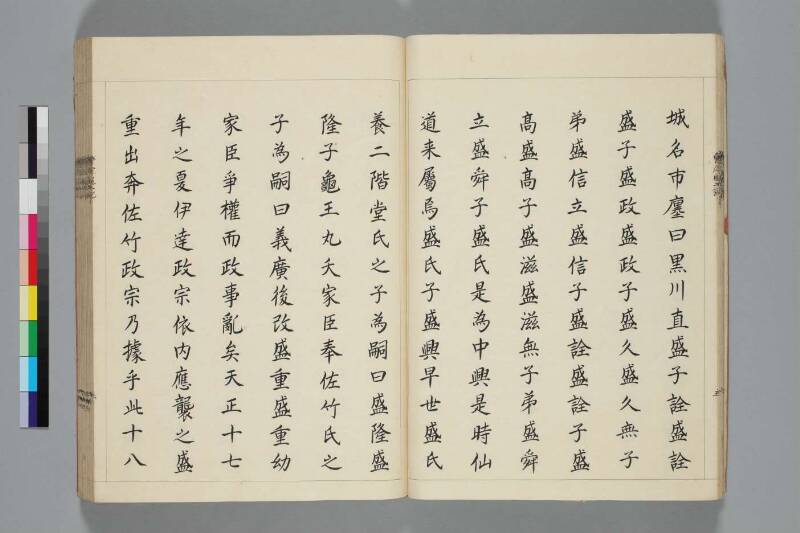 城名市廛曰黒川直盛子詮盛詮
盛子盛政盛政子盛久盛久無子
弟盛信立盛信子盛詮盛詮子盛
髙盛髙子盛滋盛滋無子弟盛舜
立盛舜子盛氏是為中興是時仙
道来屬焉盛氏子盛興早世盛氏
養二階堂氏之子為嗣曰盛隆盛
隆子龜王丸夭家臣奉佐竹氏之
子為嗣曰義廣後改盛重盛重幼
家臣爭權而政事亂矣天正十七
年之夏伊達政宗依内應襲之盛
重出奔佐竹政宗乃據乎此十八